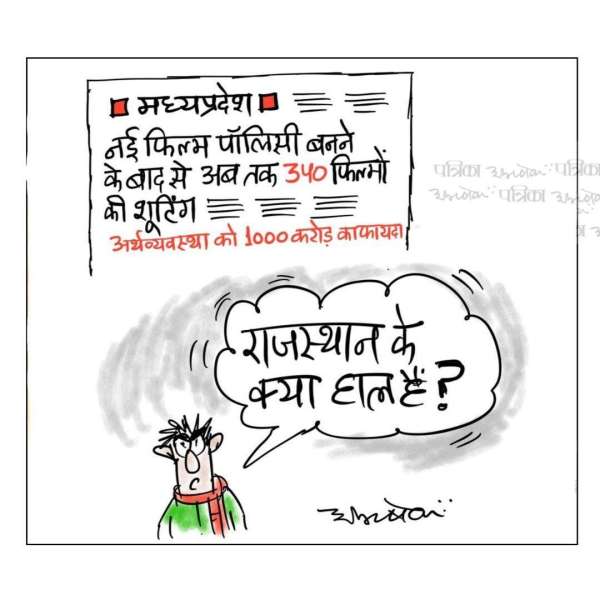 मध्यप्रदेश
नई फिल्म पॉलिसी बनने
के बाद से अब तक 340 फिल्मों
की शूटिंग
अर्थव्यवस्था को 1000 करोड़ का फायदा
पत्रिका पत्रिका
पत्रिका
राजस्थान के
क्या हाल हैं?